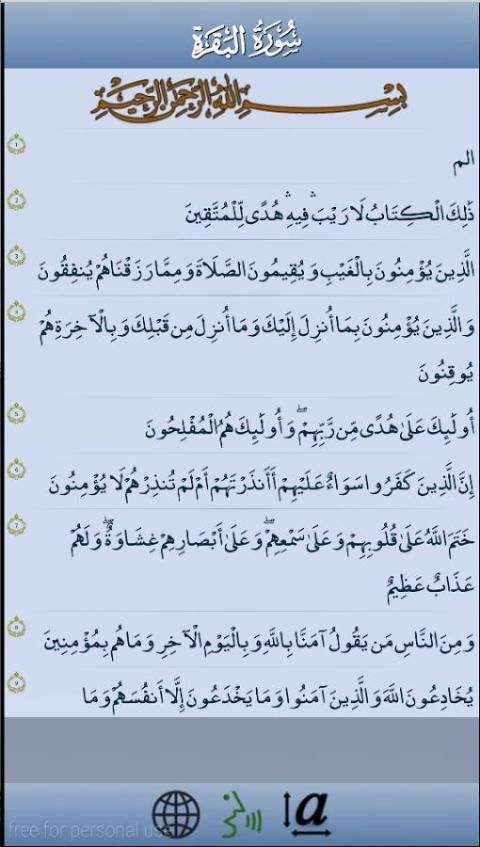 سُورَةُ الْبَقَرَةِ
بِسْمِ اللَّهِ الرَّحْمَنِ الرَّحِيمِ
1
الم
2
ذَٰلِكَ الْكِتَابُ لَا رَيْبَ ۛ فِيهِ ۛ هُدًى لِّلْمُتَّقِينَ
3
الَّذِينَ يُؤْمِنُونَ بِالْغَيْبِ وَيُقِيمُونَ الصَّلَاةَ وَمِمَّا رَزَقْنَاهُمْ يُنفِقُونَ
4
وَالَّذِينَ يُؤْمِنُونَ بِمَا أُنزِلَ إِلَيْكَ وَمَا أُنزِلَ مِن قَبْلِكَ وَبِالْآخِرَةِ هُمْ
يُوقِنُونَ
5
أُولَٰئِكَ عَلَىٰ هُدًى مِّن رَّبِّهِمْ ۖ وَأُولَٰئِكَ هُمُ الْمُفْلِحُونَ
6
إِنَّ الَّذِينَ كَفَرُوا سَوَاءٌ عَلَيْهِمْ أَأَنذَرْتَهُمْ أَمْ لَمْ تُنذِرْهُمْ لَا يُؤْمِنُونَ
7
خَتَمَ اللَّهُ عَلَىٰ قُلُوبِهِمْ وَعَلَىٰ سَمْعِهِمْ ۖ وَعَلَىٰ أَبْصَارِهِمْ غِشَاوَةٌ ۖ وَلَهُمْ
عَذَابٌ عَظِيمٌ
8
وَمِنَ النَّاسِ مَن يَقُولُ آمَنَّا بِاللَّهِ وَبِالْيَوْمِ الْآخِرِ وَمَا هُم بِمُؤْمِنِينَ
9
يُخَادِعُونَ اللَّهَ وَالَّذِينَ آمَنُوا وَمَا يَخْدَعُونَ إِلَّا أَنفُسَهُمْ وَمَا
a
free for personal use